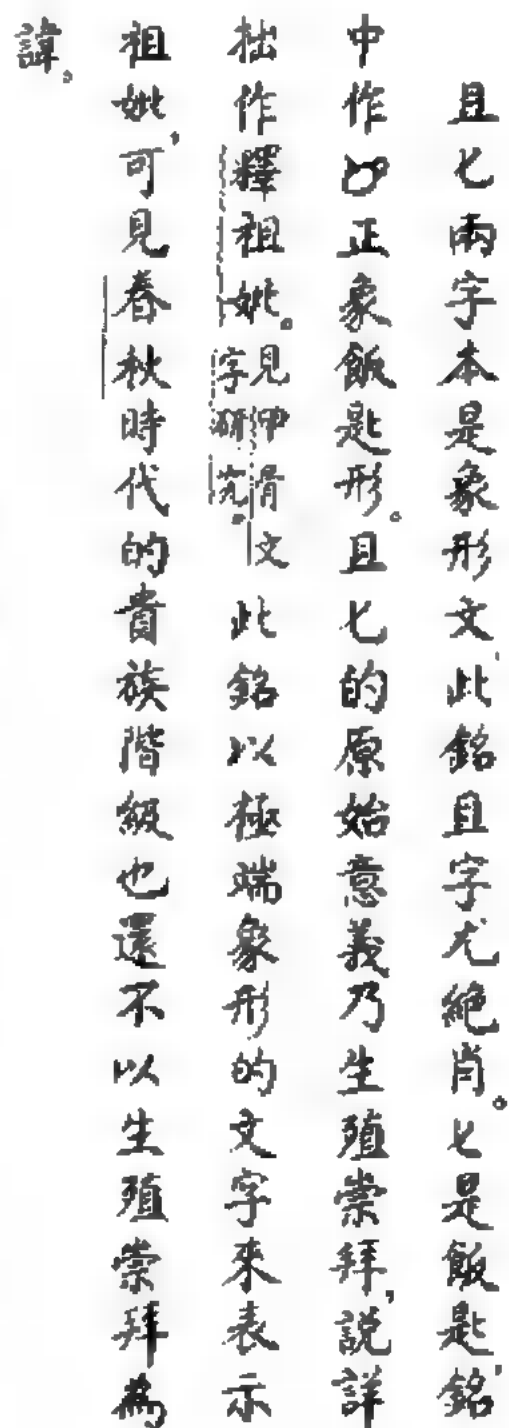 且匕兩字本是象形文,此銘且字尤絕肖。匕是飯匙,銘
中作正象飯匙形。且匕的原始意義乃生殖崇拜,說詳
拙作釋祖妣。見甲骨文字研究。此銘以極端象形的文字來表示
祖妣,可見春秋時代的貴族階級也還不以生殖崇拜為
諱。